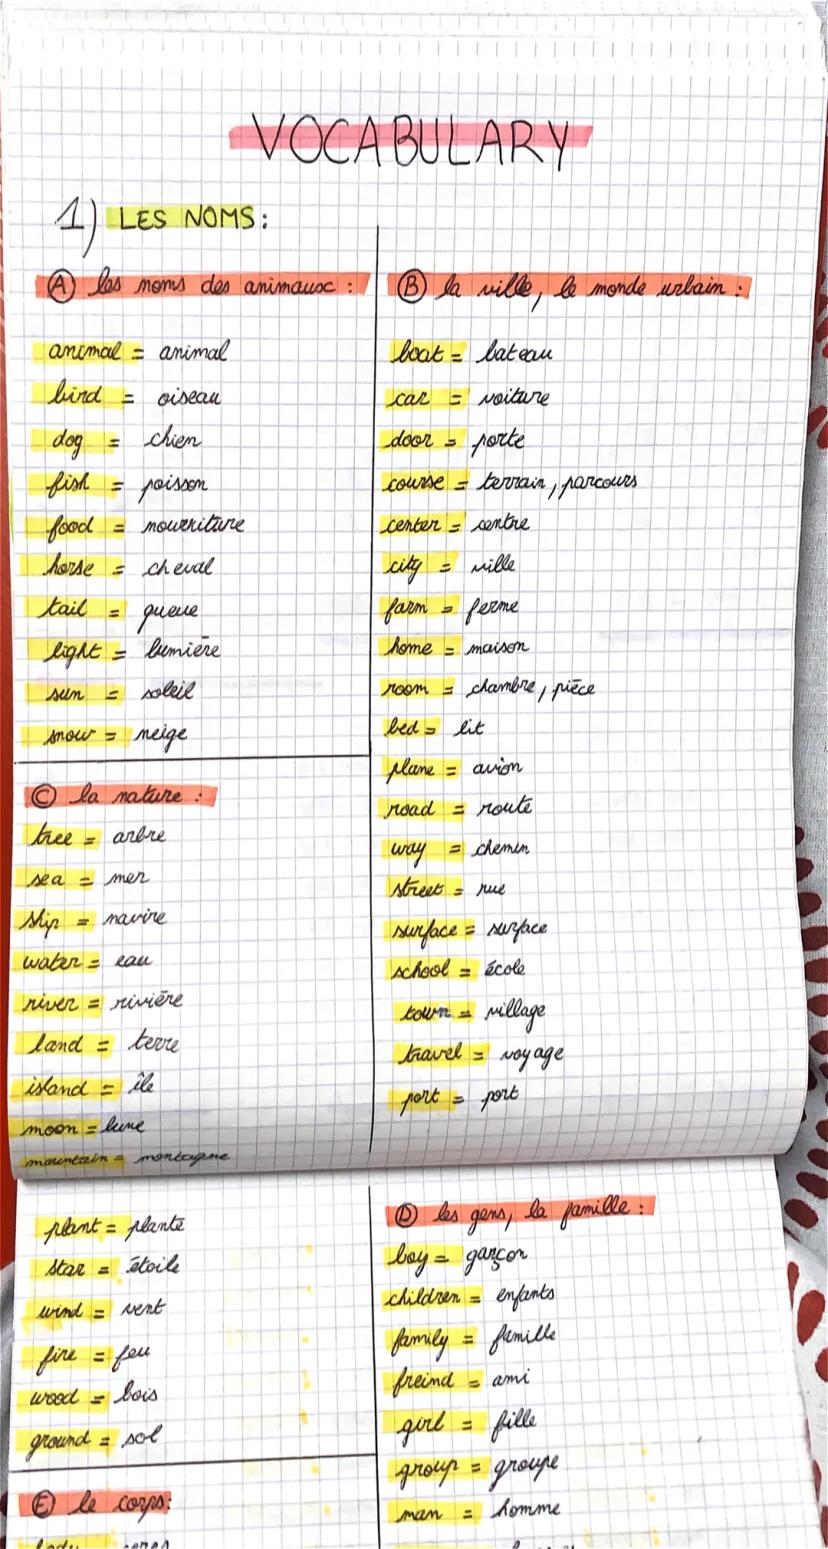 VOCABULARY
1) LES NOMS:
Ⓐ les noms des animaux :
animal = animal
bird = oiseau
dog = chien
fish = poisson
food = nourriture
horse = cheval
tail = queue
light = lumière
sun = soleil
snow = neige
Ⓑ la ville, le monde urbain :
boat = bateau
car = voiture
door = porte
course = terrain, parcours
center = centre
city = ville
farm = ferme
home = maison
room = chambre, pièce
bed = lit
plane = avion
road = route
way = chemin
street = rue
surface = surface
school = école
town = village
travel = voyage
port = port
Ⓒ la nature :
tree = arbre
sea = mer
ship = navire
water = eau
river = rivière
land = terre
island = île
moon = lune
mountain = montagne
plant = plante
star = étoile
wind = vent
fire = feu
wood = bois
ground = sol
Ⓓ les gens, la famille :
boy = garçon
children = enfants
family = famille
freind = ami
girl = fille
group = groupe
man = homme
Ⓔ le corps: